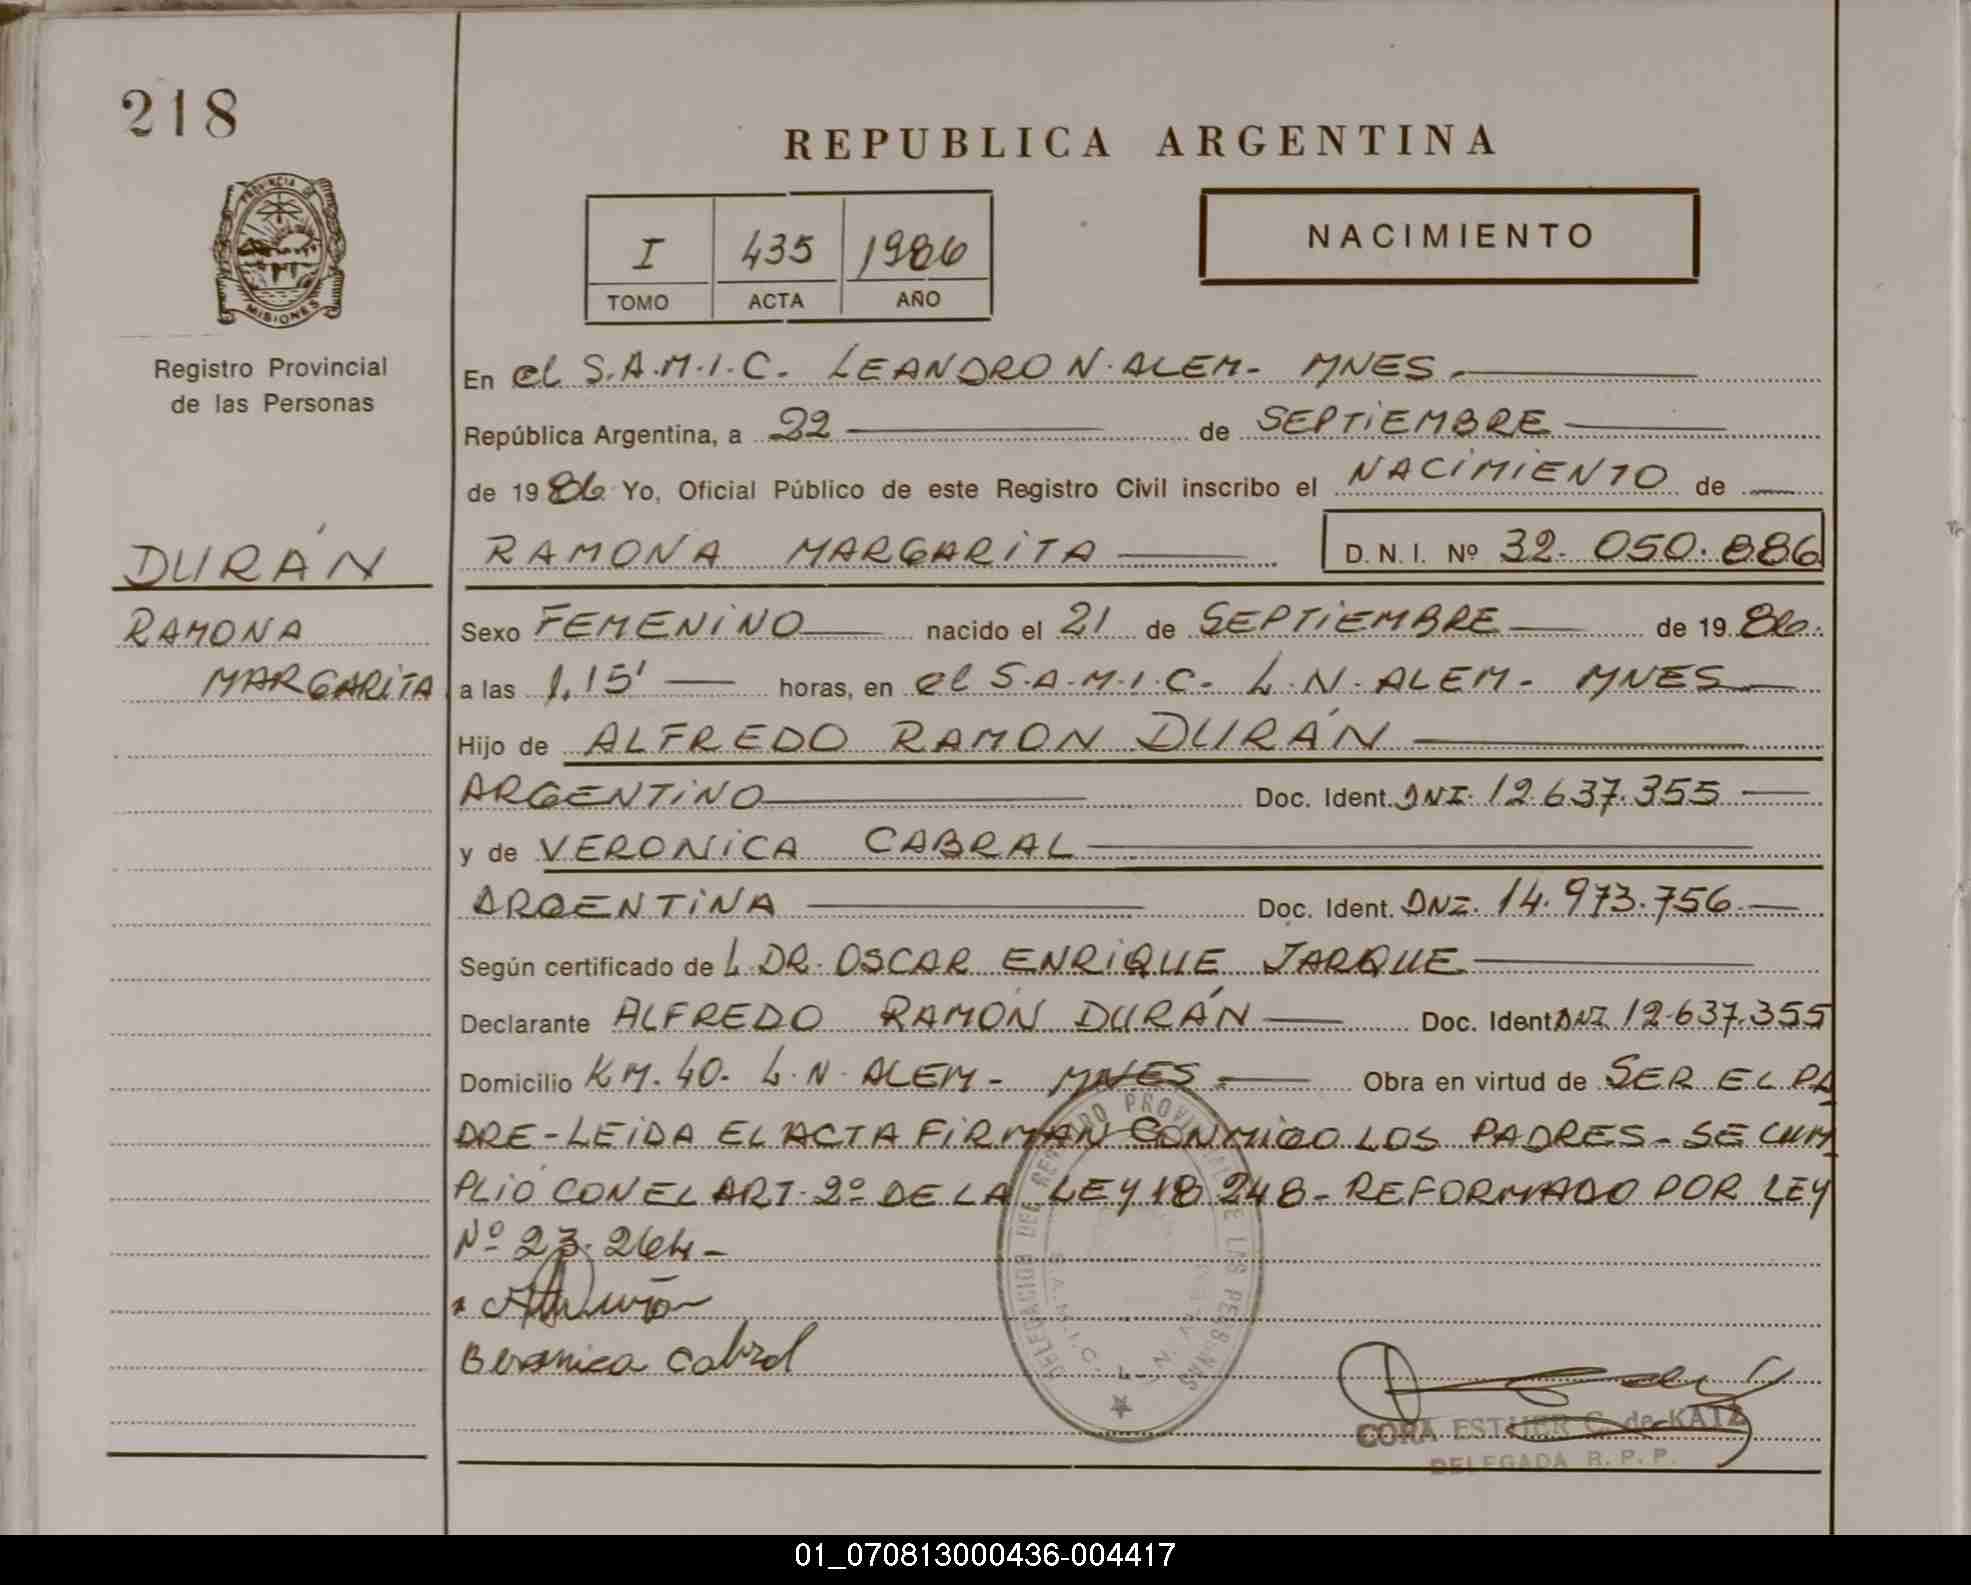 218
REPUBLICA ARGENTINA
PROVINCIA DE
MISIONES
Registro Provincial
de las Personas
I 435 1986
TOMO ACTA AÑO
NACIMIENTO
En el S.A.M.I.C. LEANDRO N. ALEM - MNES.
República Argentina, a 22 de SEPTIEMBRE
de 1986 Yo, Oficial Público de este Registro Civil inscribo el NACIMIENTO de
DURÁN
RAMONA MARGARITA D. N. I. Nº 32.050.886
RAMONA
MARGARITA
Sexo FEMENINO nacido el 21 de SEPTIEMBRE de 1986.
a las 1,15' horas, en el S.A.M.I.C. L.N. ALEM - MNES
Hijo de ALFREDO RAMON DURÁN
ARGENTINO Doc. Ident. DNI. 12.637.355
y de VERONICA CABRAL
ARGENTINA Doc. Ident. DNI. 14.973.756
Según certificado de L DR. OSCAR ENRIQUE JARQUE
Declarante ALFREDO RAMÓN DURÁN Doc. Ident DNI 12.637.355
Domicilio KM. 40. L.N. ALEM - MNES. Obra en virtud de SER EL PA
DRE - LEIDA EL ACTA FIRMAN CONMIGO LOS PADRES - SE CUM
PLIÓ CON EL ART. 2º DE LA LEY 18 248 - REFORMADO POR LEY
Nº 23.264 -
Beronica Cabral
DELEGACION DEL REGISTRO PROVINCIAL DE LAS PERSONAS
S.A.M.I.C. L.N.
CORA ESTHER C. de KATZ
DELEGADA R. P. P.
01_070813000436-004417